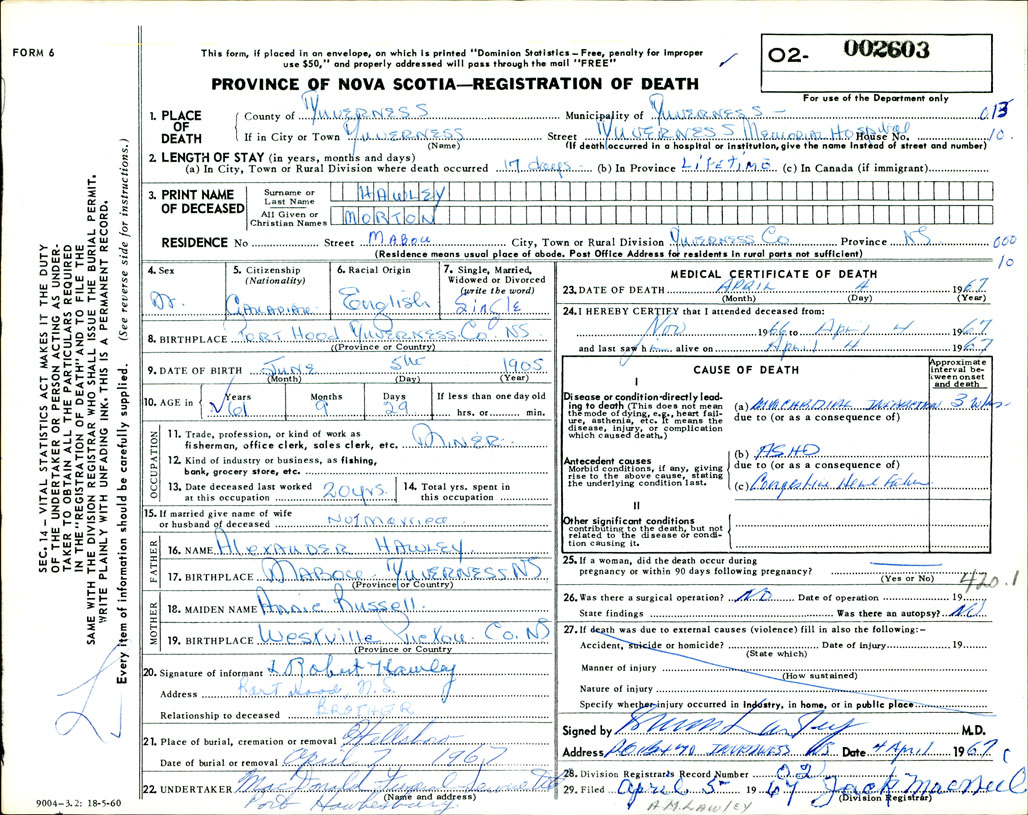 FORM 6
This form, if placed in an envelope, on which is printed "Dominion Statistics – Free, penalty for improper
use $50," and properly addressed will pass through the mail "FREE"
O2- 002603
PROVINCE OF NOVA SCOTIA—REGISTRATION OF DEATH
For use of the Department only
1. PLACE OF DEATH
County of INVERNESS Municipality of INVERNESS
If in City or Town INVERNESS Street INVERNESS MEMORIAL HOSPITAL House No. 10.
(Name) (If death occurred in a hospital or institution, give the name instead of street and number)
2. LENGTH OF STAY (in years, months and days)
(a) In City, Town or Rural Division where death occurred 17 days (b) In Province LIFETIME (c) In Canada (if immigrant)
3. PRINT NAME OF DECEASED
Surname or Last Name HAWLEY
All Given or Christian Names MORTON
RESIDENCE No Street MABOU City, Town or Rural Division INVERNESS Co Province NS 000
(Residence means usual place of abode. Post Office Address for residents in rural parts not sufficient) 10
4. Sex M.
5. Citizenship (Nationality) CANADIAN
6. Racial Origin English
7. Single, Married, Widowed or Divorced (write the word) SINGLE
8. BIRTHPLACE PORT HOOD INVERNESS Co NS
(Province or Country)
9. DATE OF BIRTH JUNE 5th 1905
(Month) (Day) (Year)
10. AGE in Years 61 Months 9 Days 29 If less than one day old
hrs. or min.
OCCUPATION
11. Trade, profession, or kind of work as
fisherman, office clerk, sales clerk, etc. MINER
12. Kind of industry or business, as fishing,
bank, grocery store, etc.
13. Date deceased last worked
at this occupation 20 yrs.
14. Total yrs. spent in
this occupation
15. If married give name of wife
or husband of deceased NOT MARRIED
FATHER
16. NAME ALEXANDER HAWLEY
17. BIRTHPLACE MABOU INVERNESS NS
(Province or Country)
MOTHER
18. MAIDEN NAME Annie Russell
19. BIRTHPLACE Westville Pictou Co. NS
(Province or Country)
20. Signature of informant Robert Hawley
Address Port Hood, N.S.
Relationship to deceased BROTHER
21. Place of burial, cremation or removal Hillsboro
Date of burial or removal April 7 1967
22. UNDERTAKER MacDonald Funeral Service
(Name and address)
Port Hawkesbury
9004-3.2: 18-5-60
MEDICAL CERTIFICATE OF DEATH
23. DATE OF DEATH APRIL 4 1967
(Month) (Day) (Year)
24. I HEREBY CERTIFY that I attended deceased from:
Nov 1966 to April 4 1967
and last saw him alive on April 4 1967
CAUSE OF DEATH
Approximate interval between onset and death
I
Disease or condition directly leading to death (This does not mean
the mode of dying, e.g., heart failure, asthenia, etc. It means the
disease, injury, or complication
which caused death.)
(a) MYOCARDIAL INFARCTION 3 wks
due to (or as a consequence of)
Antecedent causes
Morbid conditions, if any, giving
rise to the above cause, stating
the underlying condition last.
(b) ASHD
due to (or as a consequence of)
(c) Congestive Heart Failure
II
Other significant conditions
contributing to the death, but not
related to the disease or condition causing it.
25. If a woman, did the death occur during
pregnancy or within 90 days following pregnancy?
(Yes or No) 420.1
26. Was there a surgical operation? NO Date of operation 19
State findings Was there an autopsy? NO
27. If death was due to external causes (violence) fill in also the following:–
Accident, suicide or homicide? Date of injury 19
(State which)
Manner of injury
(How sustained)
Nature of injury
Specify whether injury occurred in Industry, in home, or in public place
Signed by M.D.
Address INVERNESS NS Date 4 April 1967
28. Division Registrar's Record Number 22
29. Filed April 5 1967 Jack MacNeil
(Division Registrar)
A.M. LAWLEY
SEC. 14 – VITAL STATISTICS ACT MAKES IT THE DUTY
OF THE UNDERTAKER OR PERSON ACTING AS UNDERTAKER TO OBTAIN ALL THE PARTICULARS REQUIRED
IN THE "REGISTRATION OF DEATH" AND TO FILE THE
SAME WITH THE DIVISION REGISTRAR WHO SHALL ISSUE THE BURIAL PERMIT.
WRITE PLAINLY WITH UNFADING INK. THIS IS A PERMANENT RECORD.
Every item of information should be carefully supplied. (See reverse side for instructions.)